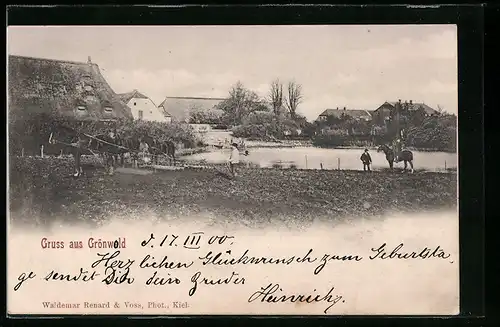 Gruss aus Grönwold d. 17. III 00.
Herzlichen Glückwunsch zum Geburtsta
ge sendet Dir dein Bruder
Heinrich.
Waldemar Renard & Voss, Phot., Kiel.